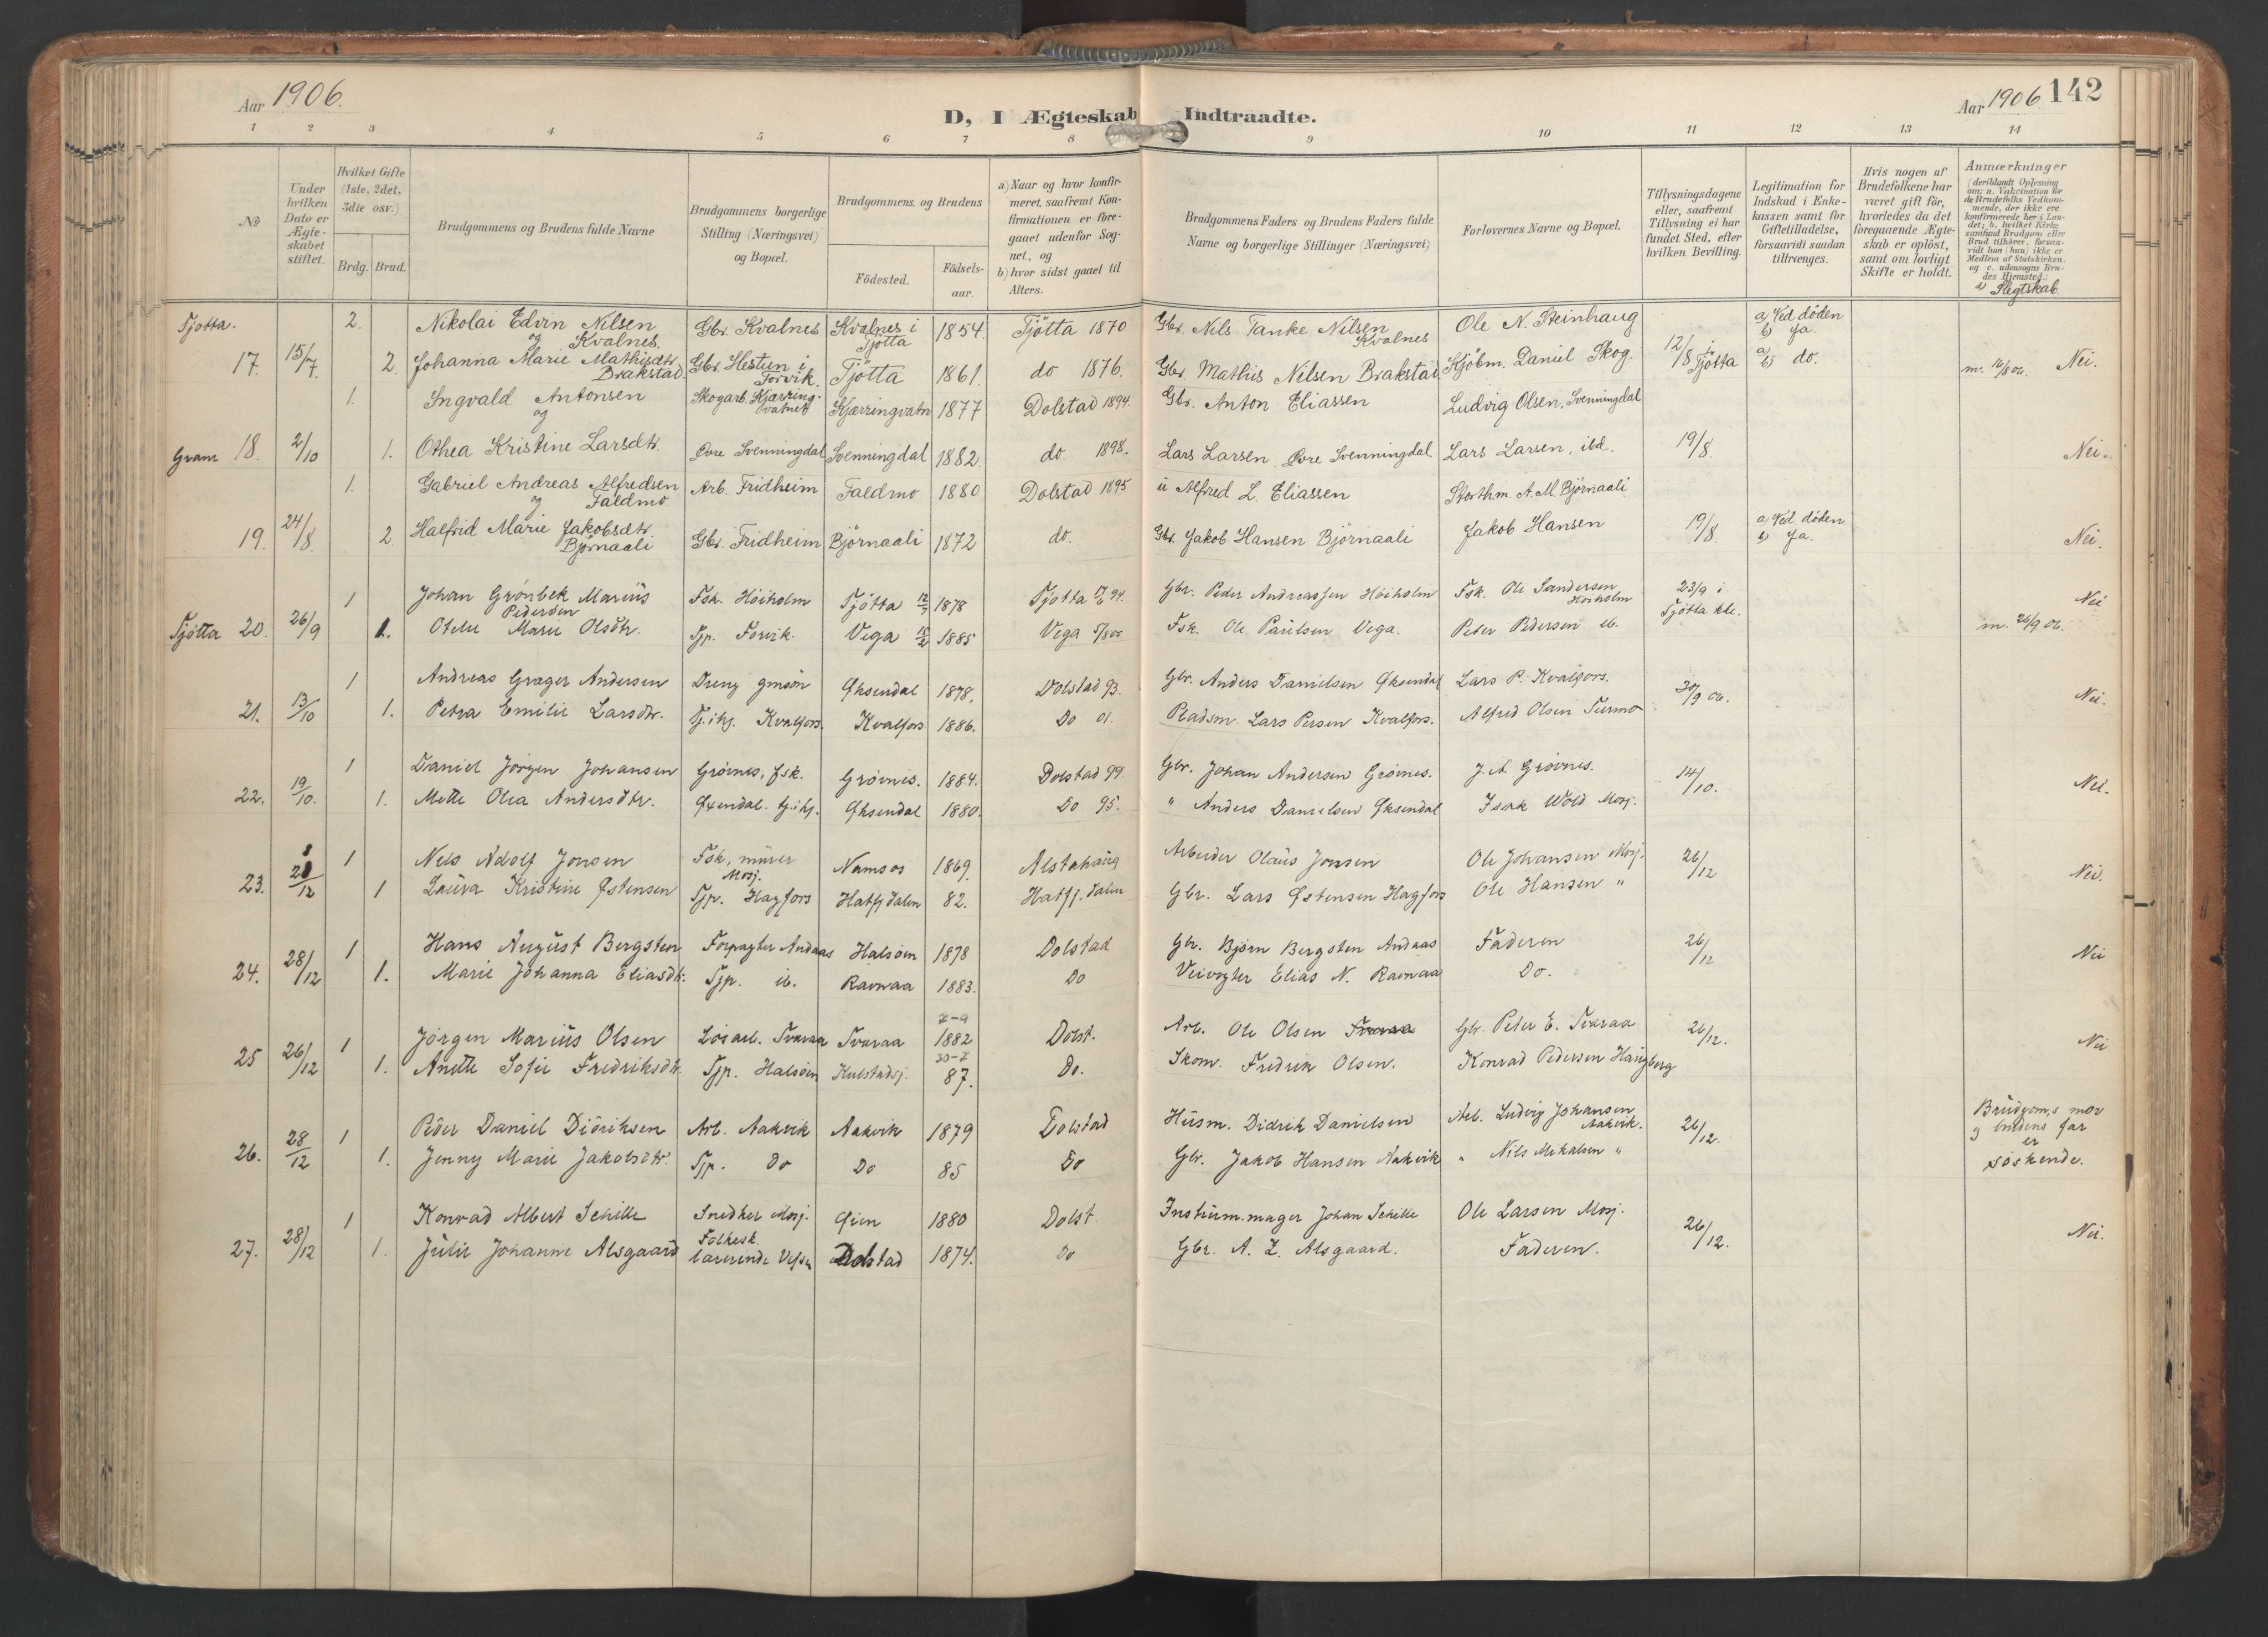 Aar 1906.
D, I Ægteskab Indtraadte.
Aar 1906. 142
1 2 3 4 5 6 7 8 9 10 11 12 13 14
No
Under hvilken Dato er Ægte-skabet stiftet.
Hvilket Gifte (1ste, 2det, 3die osv.)
Brdg. Brud.
Brudgommens og Brudens fulde Navne
Brudgommens borgerlige Stilling (Næringsvei) og Bopæl.
Brudgommens og Brudens
Födested. Födsels-aar.
a) Naar og hvor konfir-meret, saafremt Kon-firmationen er fore-gaaet udenfor Sog-net, og
b) hvor sidst gaaet til Alters.
Brudgommens Faders og Brudens Faders fulde Navne og borgerlige Stillinger (Næringsvei)
Forlovernes Navne og Bopæl.
Tillysningsdagene eller, saafremt Tillysning ei har fundet Sted, efter hvilken Bevilling.
Legitimation for Indskud i Enke-kassen samt for Giftetilladelse, forsaavidt saadan tiltrænges.
Hvis nogen af Brudefolkene har været gift för, hvorledes da det foregaaende Ægte-skab er oplöst, samt om lovligt Skifte er holdt.
Anmærkninger
(deriblandt Oplysning om: a. Vakcination for de Brudefolks Vedkom-mende, der ikke ere konfirmerede her i Lan-det; b. hvilket Kirke-samfund Brudgom eller Brud tilhörer, forsaa-vidt han (hun) ikke er Medlem af Statskirken, og c. udensogns Bru-des Hjemsted.)
Slegtskab.
Tjøtta. 2. Nikolai Edvin Nilsen Kvalnes. Gbr. Kvalnes Kvalnes i Tjøtta 1854. Tjötta 1870 Gbr. Nils Tanke Nilsen Kvalnes Ole N. Steinhaug a) Ved döden b) Ja.
og
17. 15/7. 2. Johanna Marie Mathisdtr. Brakstad. Gbr. Hestun i Forvik. Tjötta 1861. do 1876. Gbr. Mathis Nilsen Brakstad Kjöbm. Daniel Skog. 12/8 i Tjötta a) b) do. Nei.
1. Ingvald Antonsen Skogarb. Kjærring-vatnet Kjærringvatn 1877 Dolstad 1894. Gbr. Anton Eliassen Ludvig Olsen, Svenningdal
og
Gram 18. 2/10 1. Othea Kristine Larsdtr. Øvre Svenningdal Svenningdal 1882 do 1898. Lars Larsen Øvre Svenningdal Lars Larsen, ibd. 19/8. Nei.
1. Gabriel Andreas Alfredsen Faldmo Arb. Fridheim Faldmo 1880 Dolstad 1895 Alfred L. Eliassen Storthm. A. M. Björnaali
og
19. 24/8. 2. Halfrid Marie Jakobsdtr. Björnaali Gbr. Fridheim Björnaali 1872 do. Gbr. Jakob Hansen Björnaali Jakob Hansen 19/8. a) Ved döden b) Ja. Nei.
1 Johan Grönbek Marius Pedersen Fsk. Höiholm Tjötta 1878 Tjøtta 94. Gbr. Peder Andreassen Höiholm Fsk. Ole Sandersen Höiholm 23/9 i Tjötta kke. Nei
Tjötta 20. 26/9 1. Marie Olsdtr. Tjp. Forvik. Vega 1885 Vega Fsk. Ole Paulsen Vega. Peter Pedersen ib. m. 26/9 06.
1 Andreas Grager Andersen Dreng Øksendal 1878. Dolstad 93. Gbr. Anders Danielsen Øksendal Lars P. Kvalfors. 30/9 06. Nei.
21. 13/10 1. Petra Emilie Larsdtr. Kvalfors. Kvalfors 1886. Do 01. Pladsm. Lars Persen Kvalfors. Alfred Olsen Turmo
1 Daniel Jörgen Johansen Grövnes, fsk. Grövnes. 1884. Dolstad 99. Gbr. Johan Andersen Grövnes. J. A. Grövnes. 14/10. Nei.
22. 19/10. 1. Mette Olea Andersdtr. Øxendal. Øksendal 1880. Do 95. " Anders Danielsen Øksendal Isak Wold Mosj.
1 Nels Adolf Jonsen Fsk, murer Mosj. Namsos 1869. Alstahaug Arbeider Olaus Jonsen Ole Johansen Mosj. 26/12 Nei.
23. 1 Laura Kristine Østensen Tjp. Hagfors Hatfjdalen 82. Hatfj.dalen Gbr. Lars Østensen Hagfors Ole Hansen "
1 Hans August Bergsten Forpagter Andaas Halsöen 1878 Dolstad Gbr. Björn Bergsten Andaas Faderen 26/12 Nei
24. 28/12 1. Marie Johanna Eliasdtr. Tjp. ib. Ravnaa 1883. Do Veivogter Elias N. Ravnaa Do.
1 Jörgen Marius Olsen Lösarb. Tveraa Tveraa 1882 Dolst. Arb. Ole Olsen Gbr. Peter E. Tveraa 26/12. Nei
25 26/12 1. Anette Sofie Fredriksdtr. Tjp. Halsöen Kulstadsj. 87. Do. Skom. Fredrik Olsen. Konrad Pedersen Haugberg
1 Peder Daniel Didriksen Arb. Aakvik Aakvik 1879 Dolstad Husm. Didrik Danielsen Arb. Ludvig Johansen Aakvik. 26/12. Brudgom,s mor og brudens far er söskende.
26. 28/12 1. Jenny Marie Jakobsdtr. Tjp. Do Do 85 Do Gbr. Jakob Hansen Aakvik " Nils Mikalsen "
1 Konrad Albert Schille Snedker Mosj. Øien 1880 Dolst. Instrum.mager Johan Schille Ole Larsen Mosj. 26/12. Nei.
27. 28/12 1. Julie Johanne Alsgaard Folkesk. lærerinde Vefsn Dolstad 1874. Do Gbr. A. Z. Alsgaard. Faderen.